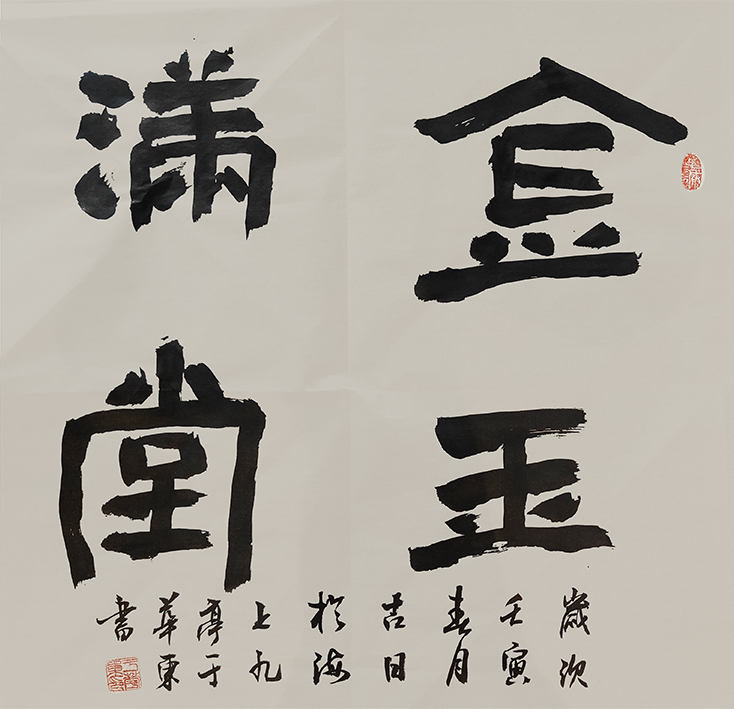 金玉
滿堂
歲次
壬寅
春月
吉日
於海
上九
亭于
華東
書